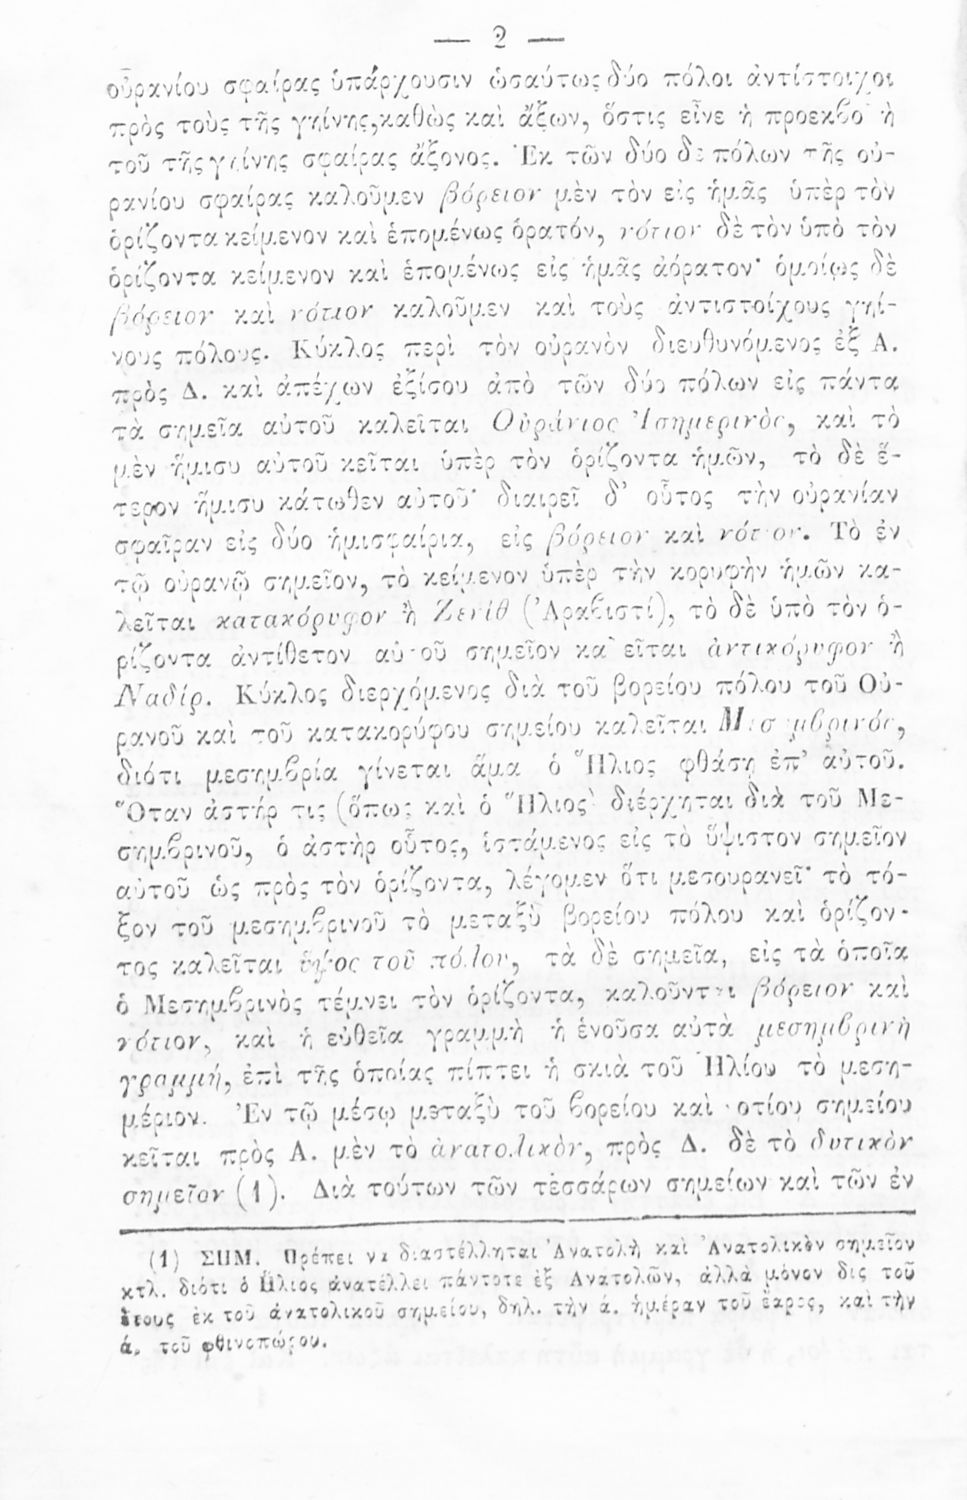 — 2 —
οὐρανίου σφαίρας ὑπάρχουσιν ὡσαύτως δύο πόλοι ἀντίστοιχοι
πρὸς τοὺς τῆς γηίνης, καθὼς καὶ ἄξων, ὅστις εἶνε ἡ προεκβο ὴ
τοῦ τῆς γηίνης σφαίρας ἄξονος. Ἐκ τῶν δύο δὲ πόλων τῆς οὐ-
ρανίου σφαίρας καλοῦμεν βόρειον μὲν τὸν εἰς ἡμᾶς ὑπὲρ τὸν
ὁρίζοντα κείμενον καὶ ἑπομένως ὁρατόν, νότιον δὲ τὸν ὑπὸ τὸν
ὁρίζοντα κείμενον καὶ ἑπομένως εἰς ἡμᾶς ἀόρατον· ὁμοίως δὲ
βόρειον καὶ νότιον καλοῦμεν καὶ τοὺς ἀντιστοίχους γηί-
νους πόλους. Κύκλος περὶ τὸν οὐρανὸν διευθυνόμενος ἐξ Α.
πρὸς Δ. καὶ ἀπέχων ἐξίσου ἀπὸ τῶν δύο πόλων εἰς πάντα
τὰ σημεῖα αὐτοῦ καλεῖται Οὐράνιος Ἰσημερινὸς, καὶ τὸ
μὲν ἥμισυ αὐτοῦ κεῖται ὑπὲρ τὸν ὁρίζοντα ἡμῶν, τὸ δὲ ἕ-
τερον ἥμισυ κάτωθεν αὐτοῦ· διαιρεῖ δ' οὗτος τὴν οὐρανίαν
σφαῖραν εἰς δύο ἡμισφαίρια, εἰς βόρειον καὶ νότιον. Τὸ ἐν
τῷ οὐρανῷ σημεῖον, τὸ κείμενον ὑπὲρ τὴν κορυφὴν ἡμῶν κα-
λεῖται κατακόρυφον ἢ Ζενὶθ (Ἀραβιστί), τὸ δὲ ὑπὸ τὸν ὁ-
ρίζοντα ἀντίθετον αὐτοῦ σημεῖον κα εῖται ἀντικόρυφον ἢ
Ναδίρ. Κύκλος διερχόμενος διὰ τοῦ βορείου πόλου τοῦ Οὐ-
ρανοῦ καὶ τοῦ κατακορύφου σημείου καλεῖται Μεσημβρινός,
διότι μεσημβρία γίνεται ἅμα ὁ Ἥλιος φθάσῃ ἐπ' αὐτοῦ.
Ὅταν ἀστήρ τις (ὅπως καὶ ὁ Ἥλιος) διέρχηται διὰ τοῦ Με-
σημβρινοῦ, ὁ ἀστὴρ οὗτος, ἱστάμενος εἰς τὸ ὕψιστον σημεῖον
αὐτοῦ ὡς πρὸς τὸν ὁρίζοντα, λέγομεν ὅτι μεσουρανεῖ· τὸ τό-
ξον τοῦ μεσημβρινοῦ τὸ μεταξὺ βορείου πόλου καὶ ὁρίζον-
τος καλεῖται ὕψος τοῦ πόλου, τὰ δὲ σημεῖα, εἰς τὰ ὁποῖα
ὁ Μεσημβρινὸς τέμνει τὸν ὁρίζοντα, καλοῦνται βόρειον καὶ
νότιον, καὶ ἡ εὐθεῖα γραμμὴ ἡ ἑνοῦσα αὐτὰ μεσημβρινὴ
γραμμή, ἐπὶ τῆς ὁποίας πίπτει ἡ σκιὰ τοῦ Ἡλίου τὸ μεση-
μέριον. Ἐν τῷ μέσῳ μεταξὺ τοῦ βορείου καὶ νοτίου σημείου
κεῖται πρὸς Α. μὲν τὸ ἀνατολικὸν, πρὸς Δ. δὲ τὸ δυτικὸν
σημεῖον (1). Διὰ τούτων τῶν τεσσάρων σημείων καὶ τῶν ἐν
(1) ΣΗΜ. Πρέπει νὰ διαστέλληται Ἀνατολὴ καὶ Ἀνατολικὸν σημεῖον
κτλ. διότι ὁ Ἥλιος ἀνατέλλει πάντοτε ἐξ Ἀνατολῶν, ἀλλὰ μόνον δὶς τοῦ
ἔτους ἐκ τοῦ ἀνατολικοῦ σημείου, δηλ. τὴν ά. ἡμέραν τοῦ ἔαρος, καὶ τὴν
ά. τοῦ φθινοπώρου.